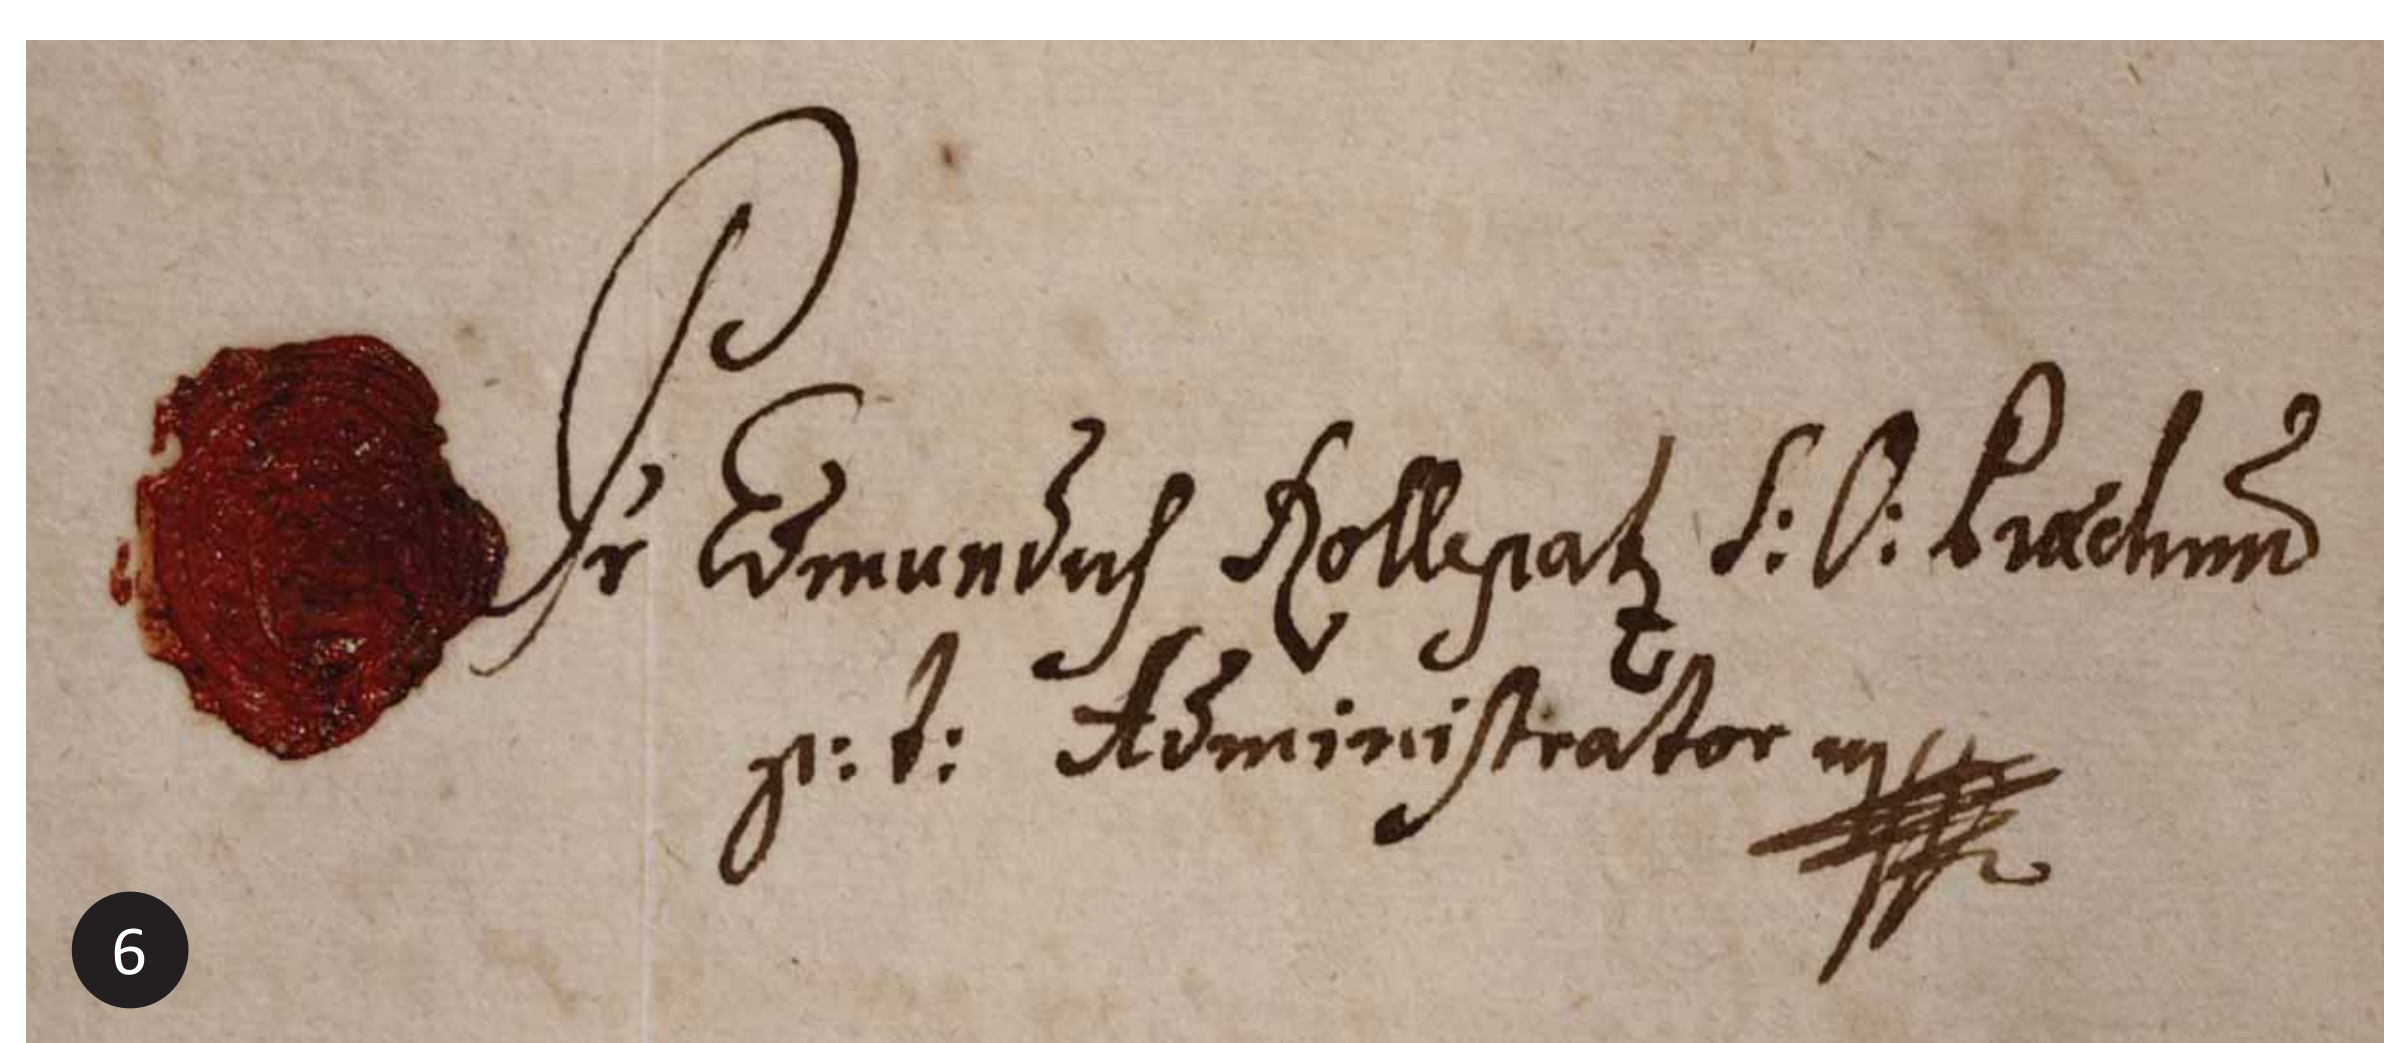 Fr Edmundus Kollepatz S: O: Præmon
p: t: Administrator mp
6